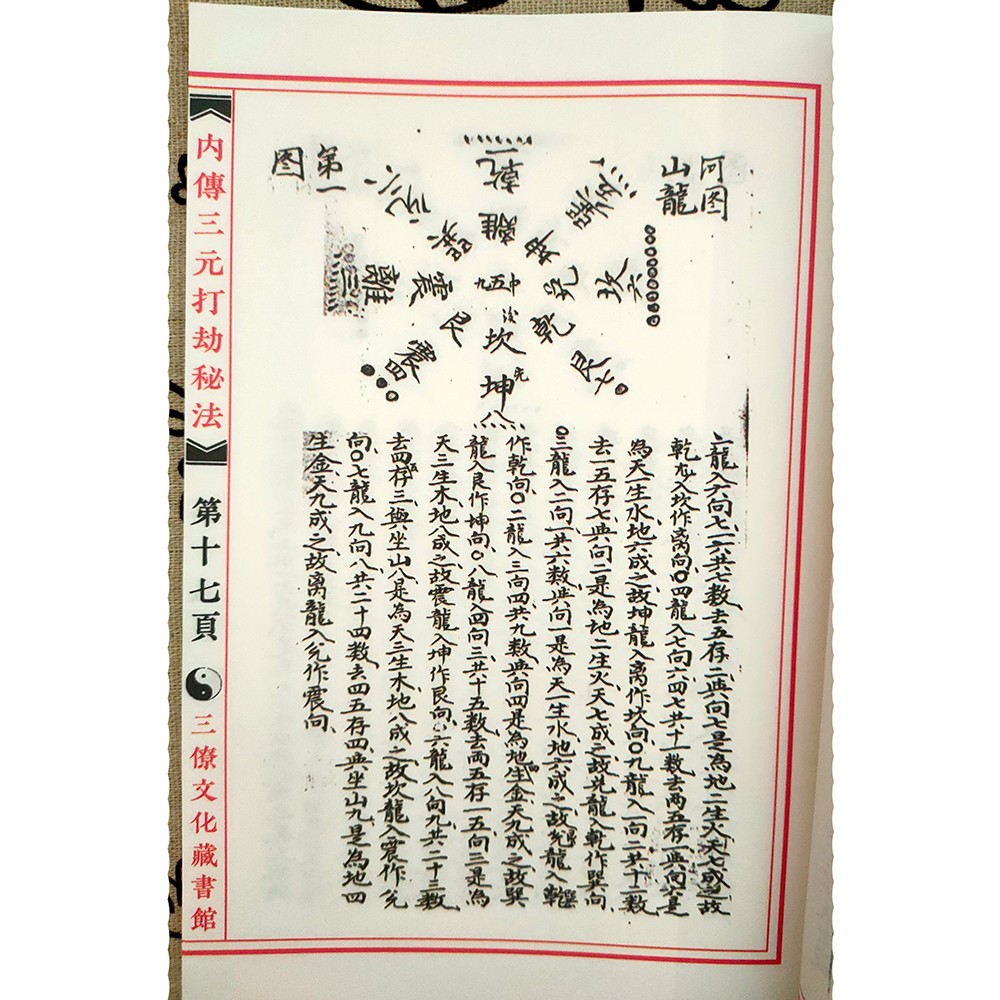 河图
山龍
第一
图
乾一
離
坤
兑
坎六
中五九
震
離三
艮
乾
後
坎
震四
艮七
先
坤八
一龍入六向七、一六共七数、去五存二、與向七、是為地二生火、天七成之、故
乾龙入坎作离向〇四龍入七向六四七共十一数去两五存一與向六是
為天一生水、地六成之、故坤龍入离作坎向〇九龍入一向二共十二数
去一五存七與向二是為地二生火天七成之、故兑龍入乾作巽向、
〇三龍入二向一共六数、與向一是為天一生水、地六成之、故龍入
作乾向〇二龍入三向四共九数與向四是為地四生金天九成之、故巽
龍入艮作坤向、〇八龍入四向三共十五数、去两五存一五向三是為
天三生木、地八成之、故震龍入坤作艮向、六龍入八向九共二十三数、
去四五存三、與坐山八是為天三生木、地八成之、故坎龍入震作兑
向、〇七龍入九向八共二十四数、去四五存四與坐山九是為地四
生金、天九成之、故离龍入兑作震向、
内傳三元打劫秘法
第十七頁
三僚文化藏書館